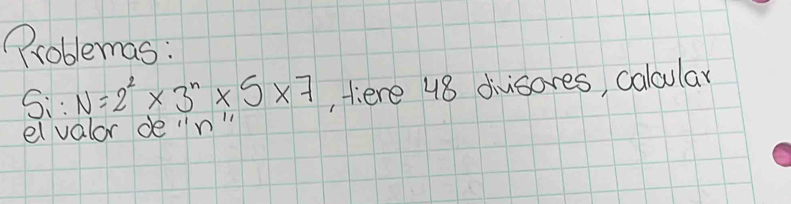 Problemas:
Si: N = 2² × 3ⁿ × 5 × 7, tiene 48 divisores, calcular
el valor de "n"